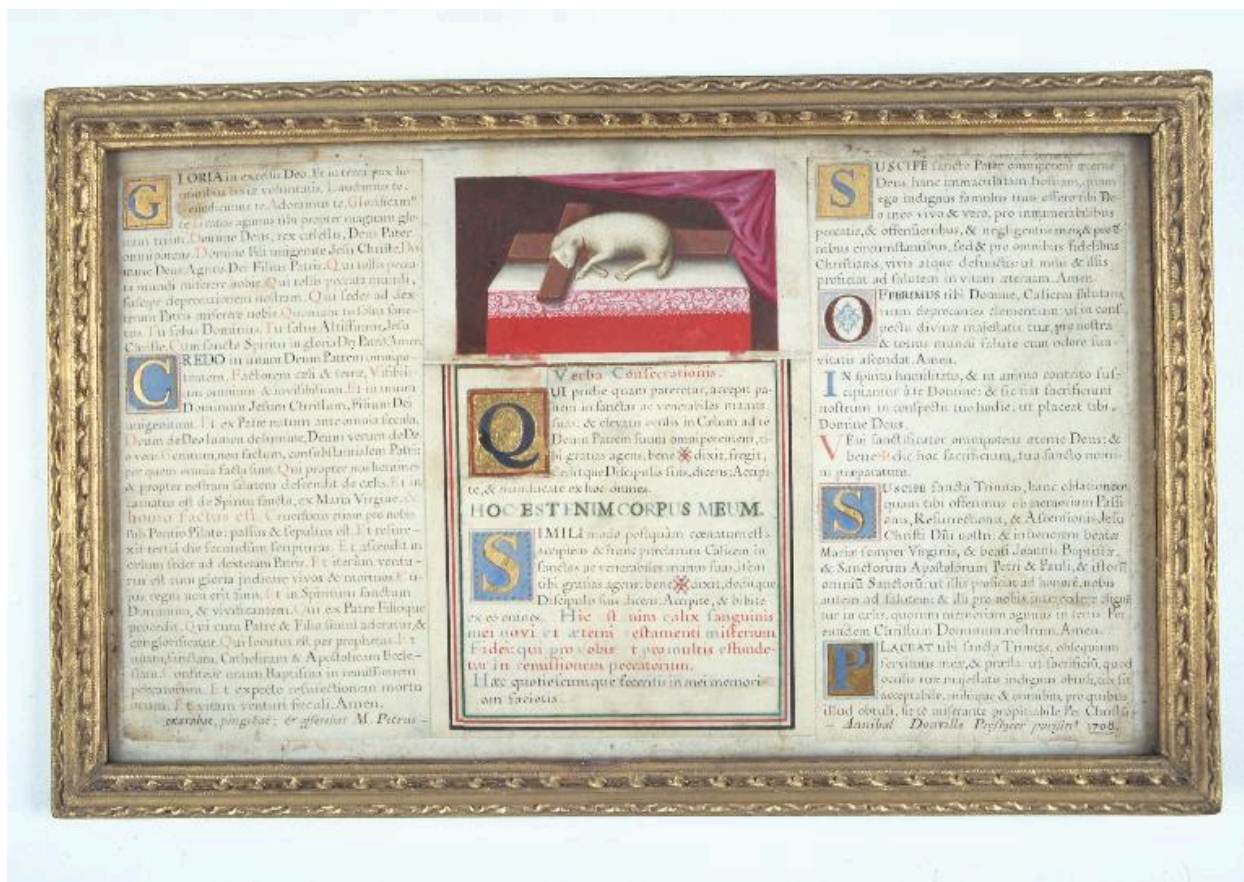 GLORIA in excelsis Deo. Et in terra pax ho
minibus bonæ voluntatis. Laudamus te.
Benedicimus te. Adoramus te. Glorificam⁹
te. Gratias agimus tibi propter magnam glo
riam tuam. Domine Deus, rex cælestis, Deus Pater
omnipotens. Domine Fili unigenite Jesu Christe. Do
mine Deus, Agnus Dei Filius Patris. Qui tollis pecca
ta mundi miserere nobis. Qui tollis peccata mundi,
suscipe deprecationem nostram. Qui sedes ad dex
teram Patris miserere nobis. Quoniam tu solus sanc
tus. Tu solus Dominus. Tu solus Altissimus, Jesu
Christe. Cum sancto Spiritu in gloria Dei Patris. Amen
CREDO in unum Deum Patrem omnipo
tentem, Factorem cæli & terræ, Visibili
um omnium & invisibilium. Et in unum
Dominum Jesum Christum, Filium Dei
unigenitum. Et ex Patre natum ante omnia sæcula.
Deum de Deo lumen de lumine, Deum verum de De
o vero. Genitum, non factum, consubstantialem Patri:
per quem omnia facta sunt. Qui propter nos homines
& propter nostram salutem descendit de cælis. Et in
carnatus est de Spiritu sancto, ex Maria Virgine. &
homo factus est. Crucifixus etiam pro nobis
sub Pontio Pilato: passus & sepultus est. Et resurre
xit tertia die secundum scripturas. Et ascendit in
cælum sedet ad dexteram Patris. Et iterum ventu
rus est cum gloria judicare vivos & mortuos: cu
jus regni non erit finis. Et in Spiritum sanctum
Dominum, & vivificantem. Qui ex Patre Filioque
procedit. Qui cum Patre & Filio simul adoratur, &
conglorificatur. Qui locutus est per prophetas. Et
unam, sanctam, Catholicam & Apostolicam Eccle-
siam. Confiteor unum Baptisma in remissionem
peccatorum. Et expecto resurectionem mortu
orum. Et vitam venturi sæculi. Amen.
exarabat, pingebat; & offerebat M. Petrus -
Verba Consecrationis.
QUI pridie quam pateretur, accepit pa
nem in sanctas ac venerabiles manus
suas: & elevatis oculis in Cælum ad te
Deum Patrem suum omnipotentem, ti
bi gratias agens, bene ✠ dixit, fregit,
deditque Discipulis suis, dicens: Accipi
te, & manducate ex hoc omnes.
HOC EST ENIM CORPUS MEUM.
SIMILI modo postquam cœnatum est
Accipiens & hunc præclarum Calicem in
sanctas ac venerabiles manus suas, item
tibi gratias agens, bene ✠ dixit, deditque
Discipulis suis dicens, Accipite, & bibite
ex eo omnes. Hic st nim calix sanguinis
mei novi et æterni estamenti misterium
Fidei: qui pro obis t pro multis effunde-
tur in remissionem peccatorum.
Hæc quotiescumque feceritis in mei memori
am facietis.
SUSCIPE sancte Pater omnipotens æterne
Deus, hanc immaculatam hostiam, quam
ego indignus famulus tuus offero tibi De
o meo vivo & vero, pro innumerabilibus
peccatis, & offensionibus, & negligentiis meis, & pro õ
nibus circumstantibus, sed & pro omnibus fidelibus
Christianis, vivis atque defunctis: ut mihi & illis
proficiat ad salutem in vitam æternam. Amen.
OFFERIMUS tibi Domine, Calicem salutaris,
tuam deprecantes clementiam: ut in cons
pectu divinæ majestatis tuæ, pro nostra
& totius mundi salute cum odore sua-
vitatis ascendat. Amen.
IN spiritu humilitatis, & in animo contrito sus-
cipiamur à te Domine: & sic fiat sacrificium
nostrum in conspectu tuo hodie, ut placeat tibi
Domine Deus.
VEni sanctificator omnipotens æterne Deus: &
bene ✠ dic hoc sacrificium, tuo sancto nomi-
ni præparatum.
SUSCIPE sancta Trinitas, hanc oblationem,
quam tibi offerimus ob memoriam Passi
onis, Resurrectionis, & Ascensionis Jesu
Christi Dñi nostri: & in honorem beatæ
Mariæ semper Virginis, & beati Joannis Baptistæ,
& Sanctorum Apostolorum Petri & Pauli, & istorũ
omniũ Sanctorũ: ut illis proficiat ad honorẽ, nobis
autem ad salutem: & illi pro nobis intercedere digne
tur in cælis, quorum memoriam agimus in terris. Per
eundem Christum Dominum nostrum. Amen.
PLACEAT tibi sancta Trinitas, obsequium
servitutis meæ, & præsta: ut sacrificiũ, quod
oculis tuæ majestatis indignus obtuli, tibi sit
acceptabile, mihique & omnibus, pro quibus
illud obtuli, sit te miserante propitiabile Per Christũ
- Annibal Douville Presbyter 1708.